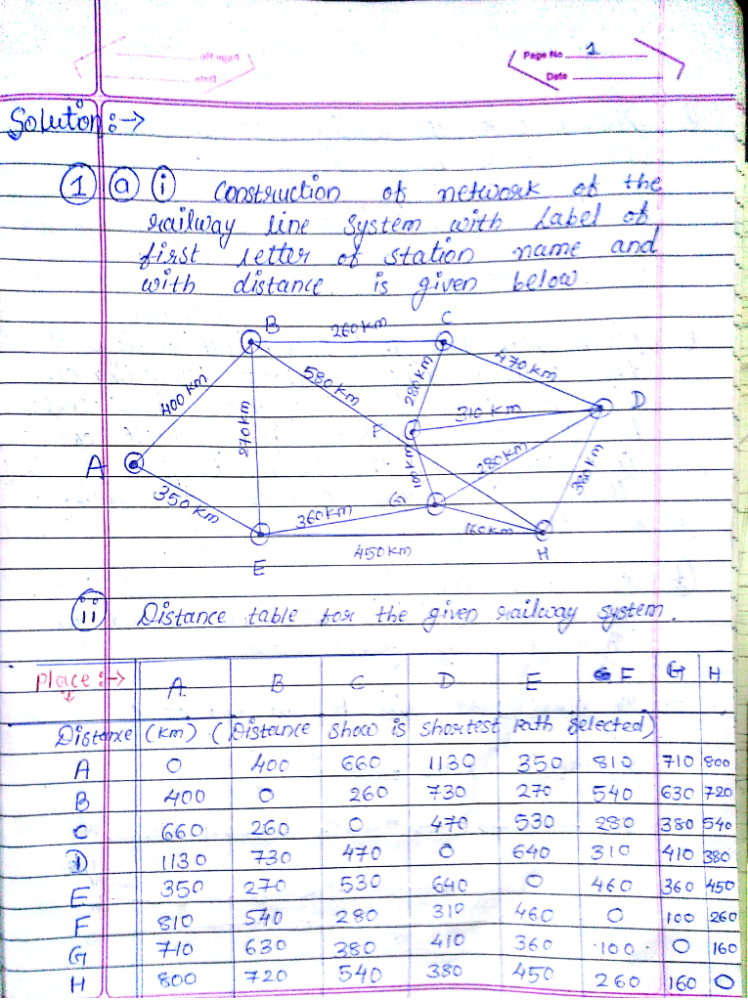 Page No 1
Date
Solution :→
1 a i Construction of network of the
railway line System with Label of
first letter of station name and
with distance is given below
B 260 km C
400 km
580 km
280 km
470 km
270 km
F 310 km D
A
350 km
100 km
280 km
380 km
G
360 km
160 km
450 km
E
H
ii Distance table for the given railway system.
Place :→ A B C D E F G H
Distance (Km) (Distance show is shortest Path selected)
A 0 400 660 1130 350 810 710 800
B 400 0 260 730 270 540 630 720
C 660 260 0 470 530 280 380 540
D 1130 730 470 0 640 310 410 380
E 350 270 530 640 0 460 360 450
F 810 540 280 310 460 0 100 260
G 710 630 380 410 360 100 0 160
H 800 720 540 380 450 260 160 0